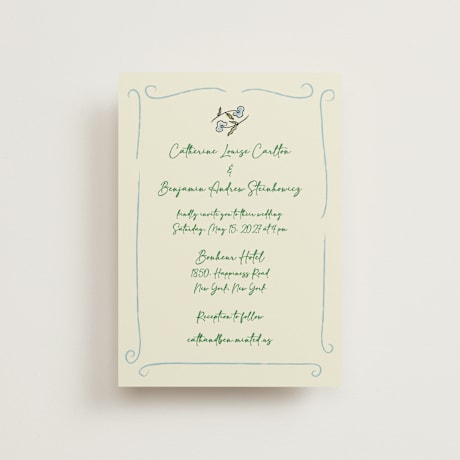 Catherine Louise Carlton
&
Benjamin Andrew Steinkowicz
kindly invite you to their wedding
Saturday, May 15, 2027 at 4 pm
Bonheur Hotel
1850, Happiness Road
New York, New York
Reception to follow
cathandben.minted.us